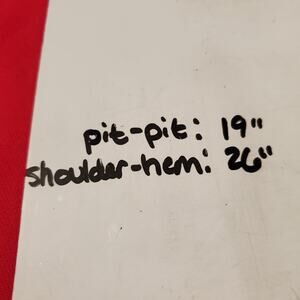 pit-pit: 19"
shoulder-hem: 26"